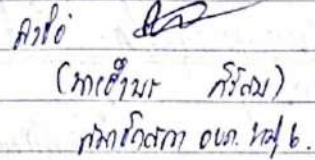 ลงชื่อ
(นายอำนร ศิริสม)
สมาชิกสภา อบต. หมู่ 6.